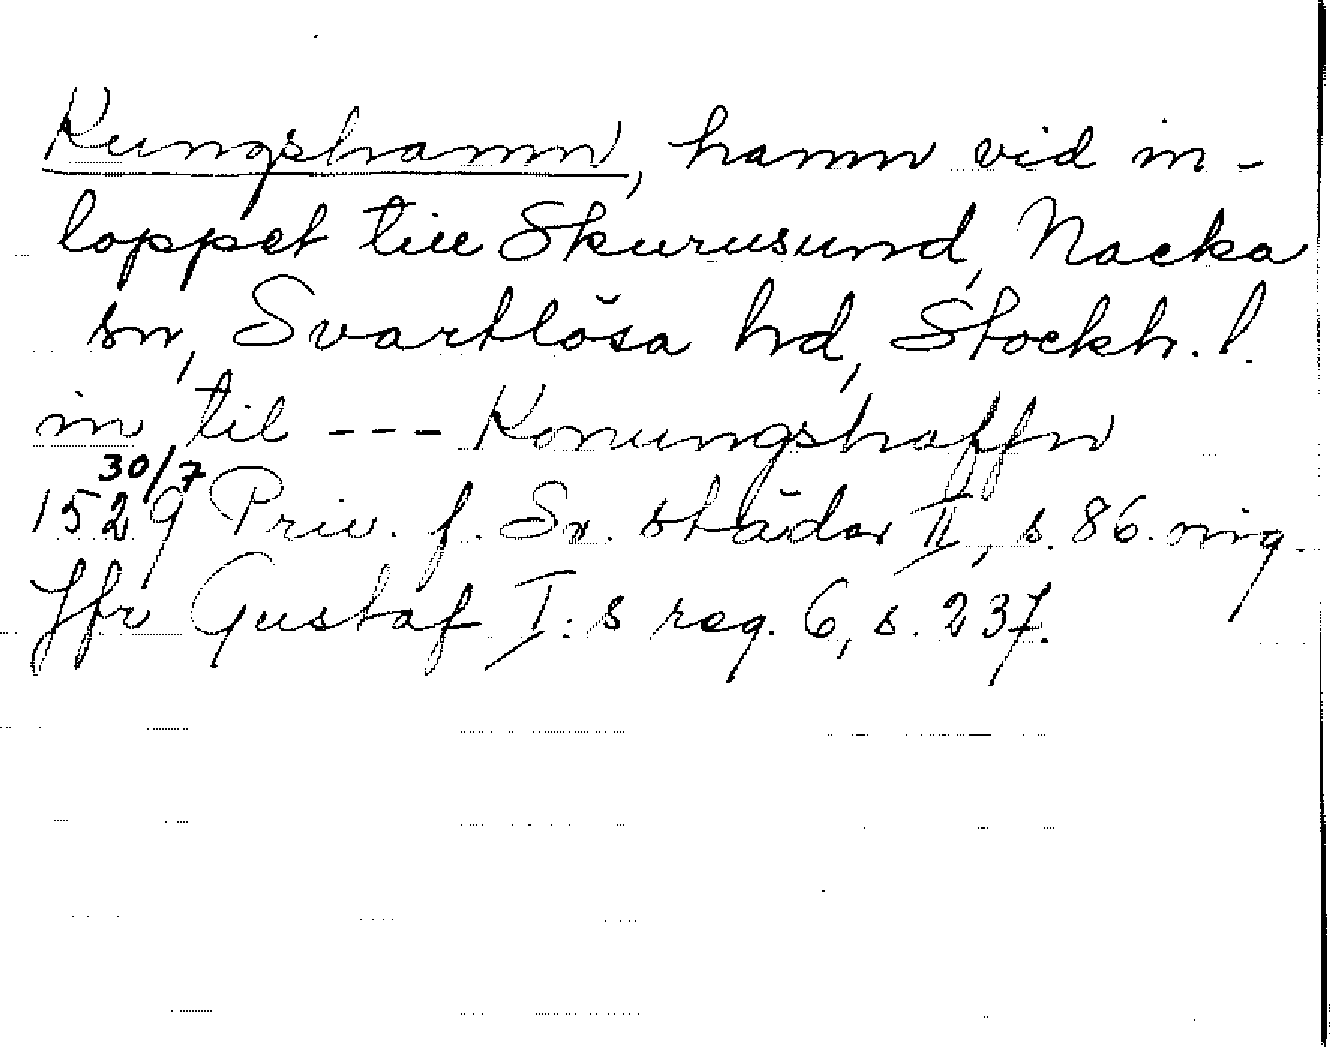 Kungshamn, hamn vid in-
loppet till Skurusund, Nacka
sn, Svartlösa hd, Stockh. l.
in til --- Konungshaffn
30/7
1529 Priv. f. Sv. städer II, s. 86. orig.
Jfr Gustaf I:s reg. 6, s. 237.